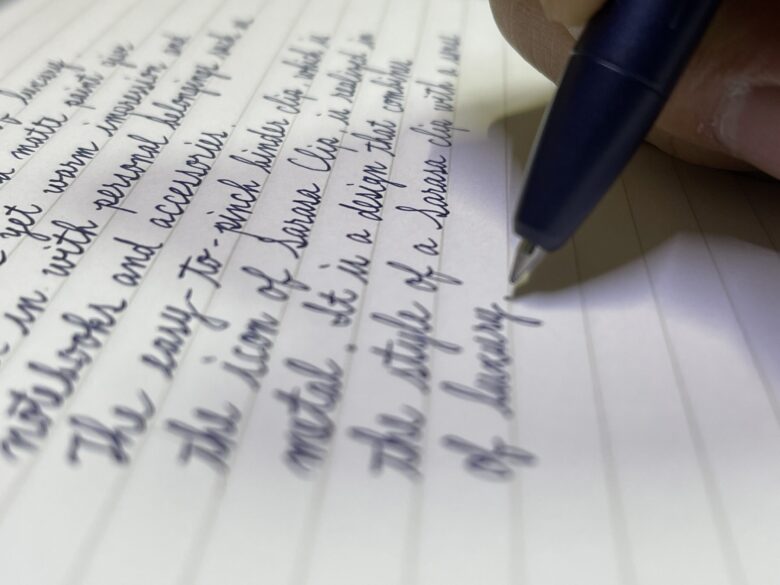 of luxury
matte paint give
yet warm impression and
in with personal belongings such a
notebooks and accessories
The easy-to-pinch binder clip which is
the icon of Sarasa Clip is realized in
metal. It is a design that combine
the style of a Sarasa clip with a sense
of luxury.